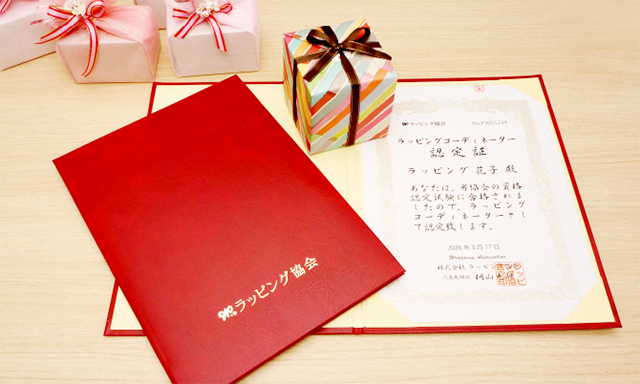 ラッピング協会
ラッピング協会 No.P2051234
ラッピングコーディネーター
認定証
ラッピング 花子 殿
あなたは、当協会の資格
認定試験に合格されま
したので、ラッピング
コーディネーターとし
て認定致します。
2026年3月17日
Wrapping Association
株式会社 ラッピング